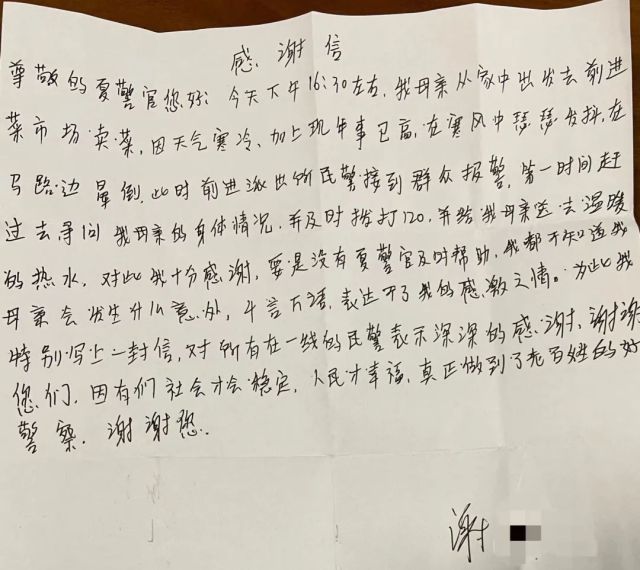 感谢信
尊敬的夏警官您好：今天下午16:30左右，我母亲从家中出发去前进
菜市场卖菜，因天气寒冷、加上现年事已高，在寒风中瑟瑟发抖，在
马路边晕倒，此时前进派出所民警接到群众报警，第一时间赶
过去寻问我母亲的身体情况，并及时拨打120，并给我母亲送去温暖
的热水，对此我十分感谢，要是没有夏警官及时帮助，我都不知道我
母亲会发生什么意外，千言万语，表达不了我的感激之情。为此我
特别写上一封信，对所有在一线的民警表示深深的感谢，谢谢
您们，因有们社会才会稳定，人民才幸福，真正做到了老百姓的好
警察，谢谢您。
谢